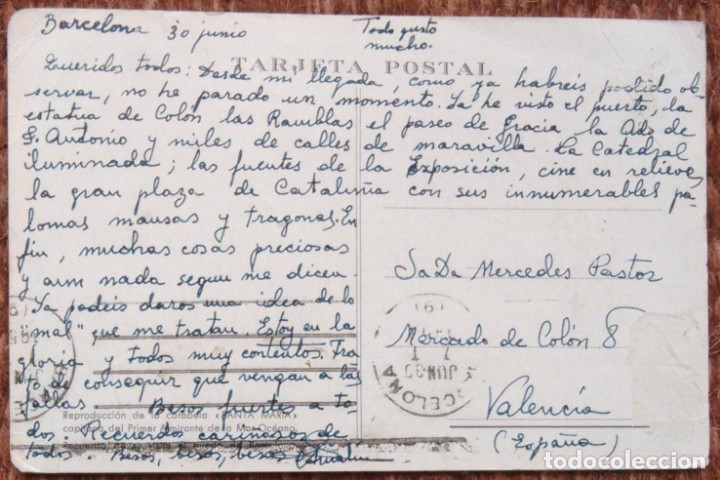 Barcelona 30 junio
Todo gusto
mucho.
TARJETA POSTAL
Queridos todos: Desde mi llegada, como ya habreis podido ob-
servar, no he parado un momento. Ya he visto el puerto, la
estatua de Colón las Ramblas el paseo de Gracia la Ada de
S. Antonio y miles de calles de maravilla. La Catedral
iluminada; las fuentes de la Exposición, cine en relieve,
la gran plaza de Cataluña con sus innumerables pa-
lomas mansas y tragonas. En
fin, muchas cosas preciosas
y aun nada segun me dicen.
Ya podeis daros una idea de lo
"mal" que me tratan. Estoy en la
gloria y todos muy contentos. Tra-
to de conseguir que vengan a las
fallas Besos fuertes a to-
dos. Recuerdos cariñosos de
todos. Besos, besos, besos
Reproducción de la carabela «SANTA MARIA»
capitana del Primer Almirante de la Mar Océano.
Mercedes Pastor
Mercado de Colón 8
Valencia
(España)
BARCELONA
JUN
todocoleccion.net